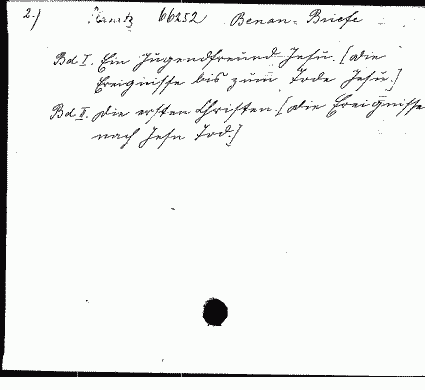 2.) 66252 Benan-Briefe
Bd I. Ein Jugendfreund Jesu. [Die
Ereignisse bis zum Tode Jesu.]
Bd II. Die ersten Christen. [Die Ereignisse
nach Jesu Tod.]